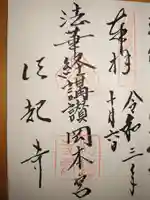 奉拝
令和三年
十月六日
法華経謌讃岡本宮
法起寺